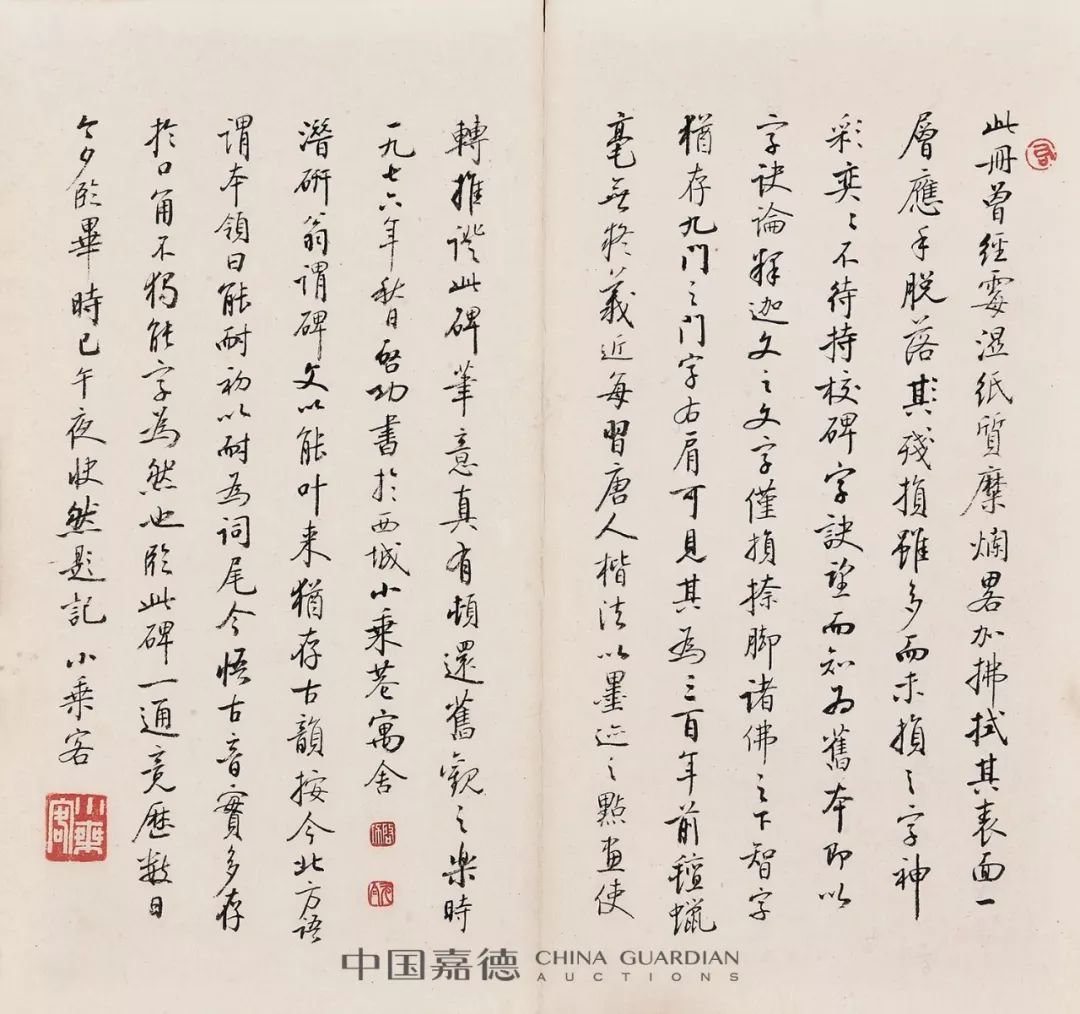 此冊曾經霉濕紙質糜爛畧加拂拭其表面一
層應手脱落其殘損雖多而未損之字神
彩奕〻不待持校碑字訣望而知為舊本即以
字訣論釋迦文之文字僅損捺脚諸佛之下智字
猶存九門之門字右肩可見其為三百年前氊蠟
毫無疑義近每習唐人楷法以墨迹之點畫使
轉推證此碑筆意真有頓還舊觀之樂時
一九七六年秋日啓功書於西城小乘菴寓舍
潛研翁謂碑文以能叶来猶存古韻按今北方語
謂本領曰能耐初以耐為詞尾今悟古音實多存
於口角不獨能字為然也臨此碑一通竟歷數日
今夕臨畢時已午夜快然題記 小乘客
小乘客
中国嘉德 CHINA GUARDIAN
AUCTIONS